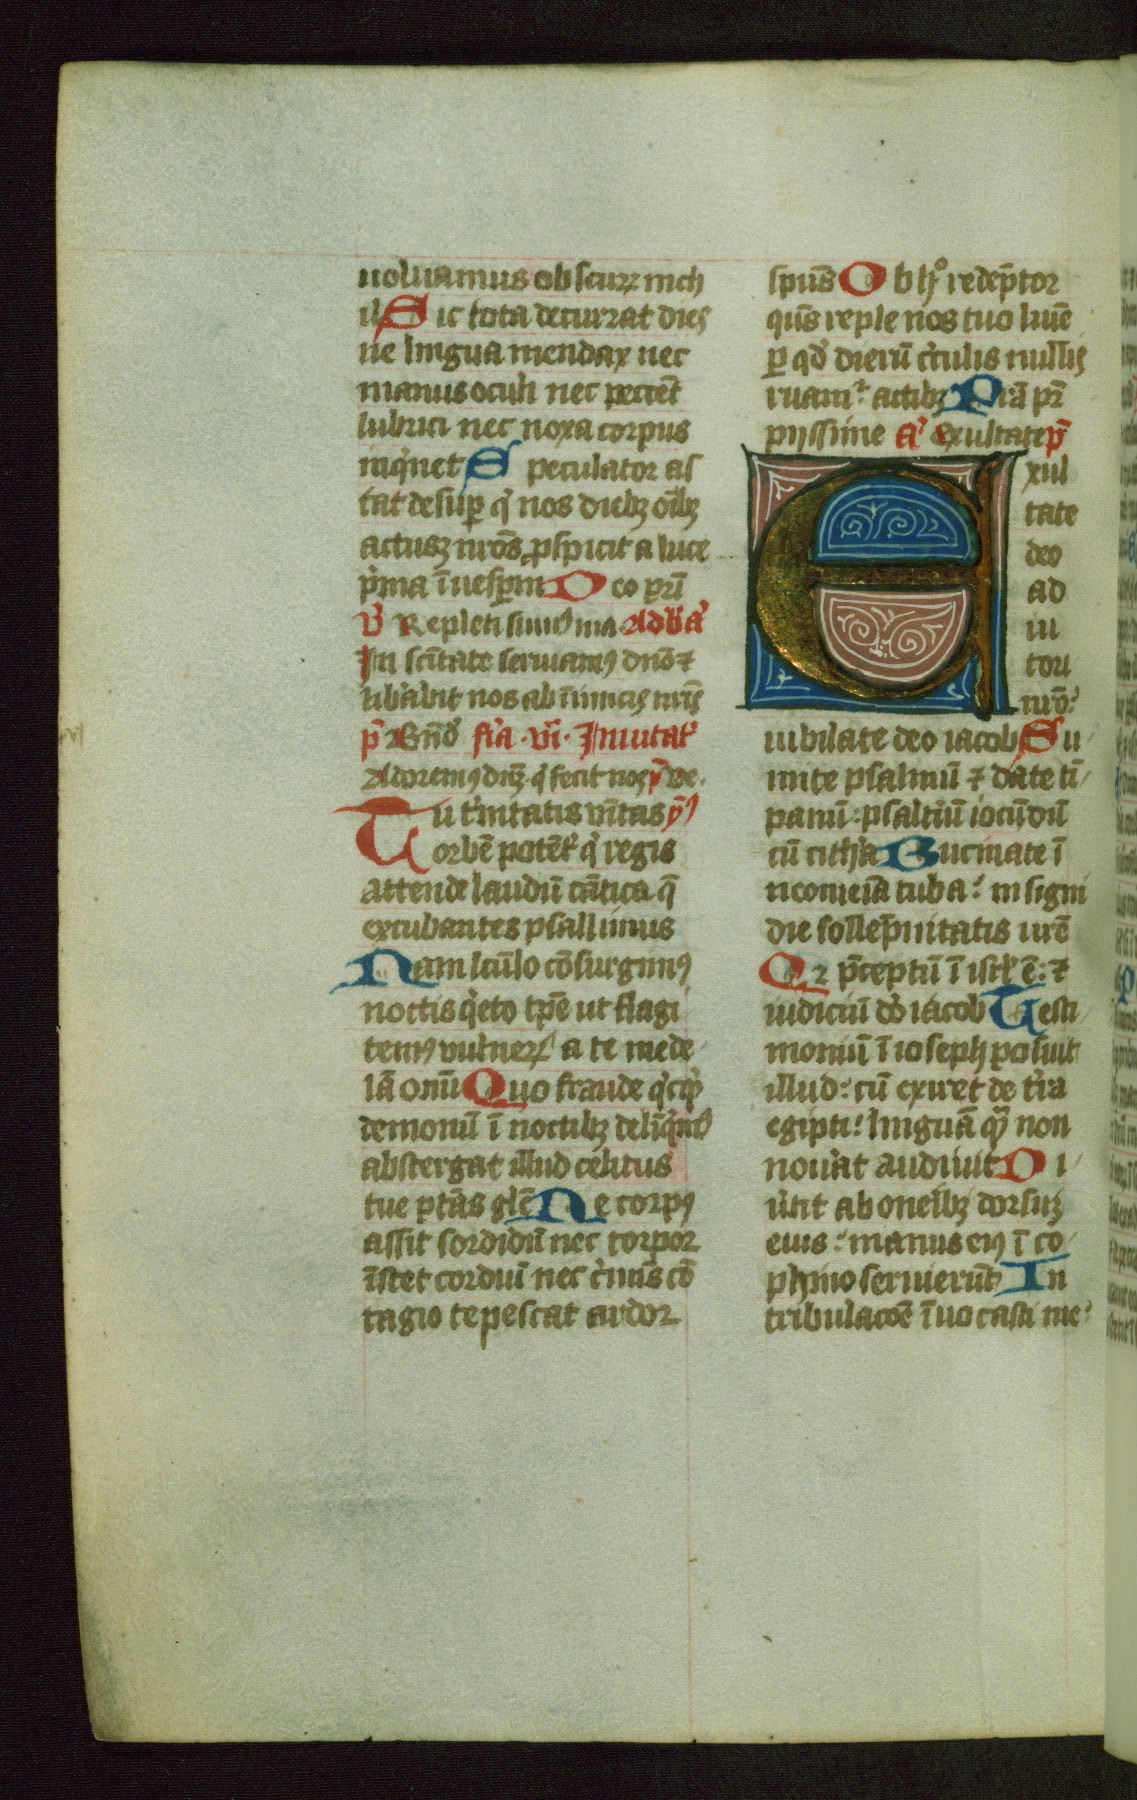 uoluamus obscurz nich
il Sic tota decurrat dies
ne lingua mendax nec
manus oculi nec peccēt
lubrici nec noxa corpus
inqͥnet Speculator as
tat desuꝑ qͥ nos diebꝫ oībꝫ
actusqꝫ nrōs ꝓspicit a luce
pͥma ī uesꝑum Deo prī
V̄ Repleti sumꝰ ma Ad bn̄ aͣ
In scītate seruiamꝰ dnō ⁊
libābit nos ab inimicis nrīs
p̄s Bn̄d͛ fīa .vi. Inuitat͛
Adoremꝰ dnꝫ qͥ fecit nos ȳ Ve.
Tu tͥnitatis vnītas yꝰ
orbē potēt͛ qͥ regis
attende laudū cātica q̄
excubantes psallimus
Nam lcūlo cōsurgimꝰ
noctis qͥeto tp̄e ut flagi
temꝰ vulneꝝ a te mede
lā omīū Quo fraude qͥcqͥd
demonū ī noctibꝫ delīqͥmꝰ
abstergat illud celitus
tue ptās glē Ne corpꝰ
assit sordidū nec torpor
īstet cordiū nec cͥminīs cō
tagio tepescat ardor
spūs Ob hͦ redēptor
qūs reple nos tuo lumē
ꝑ qd͛ dierū cͥculis nullis
ruamꝰ actibꝫ Prā pr̄
piissime A͛ exultate p̄s
Exul
tate
deo
ad
iu
tori
nrō:
iubilate deo iacob Su
mite psalmū ⁊ date tī
panū: psaltiū iocūdū
cū cithͣa Bucinate ī
neomeia tuba: in signi
die sollēpnitatis urē
Qz p̄ceptū ī isrl̄ ē: ⁊
iudiciū dō iacob Testi
moniū ī ioseph posuit
illud: cū exiret de tͥra
egipti: linguā qͣ non
nouāt audiuit Di
ūtit ab oneībꝫ dorsuꝫ
eius: manus eiꝰ ī co
phino seruierūt In
tribulacōe īuocasti me: